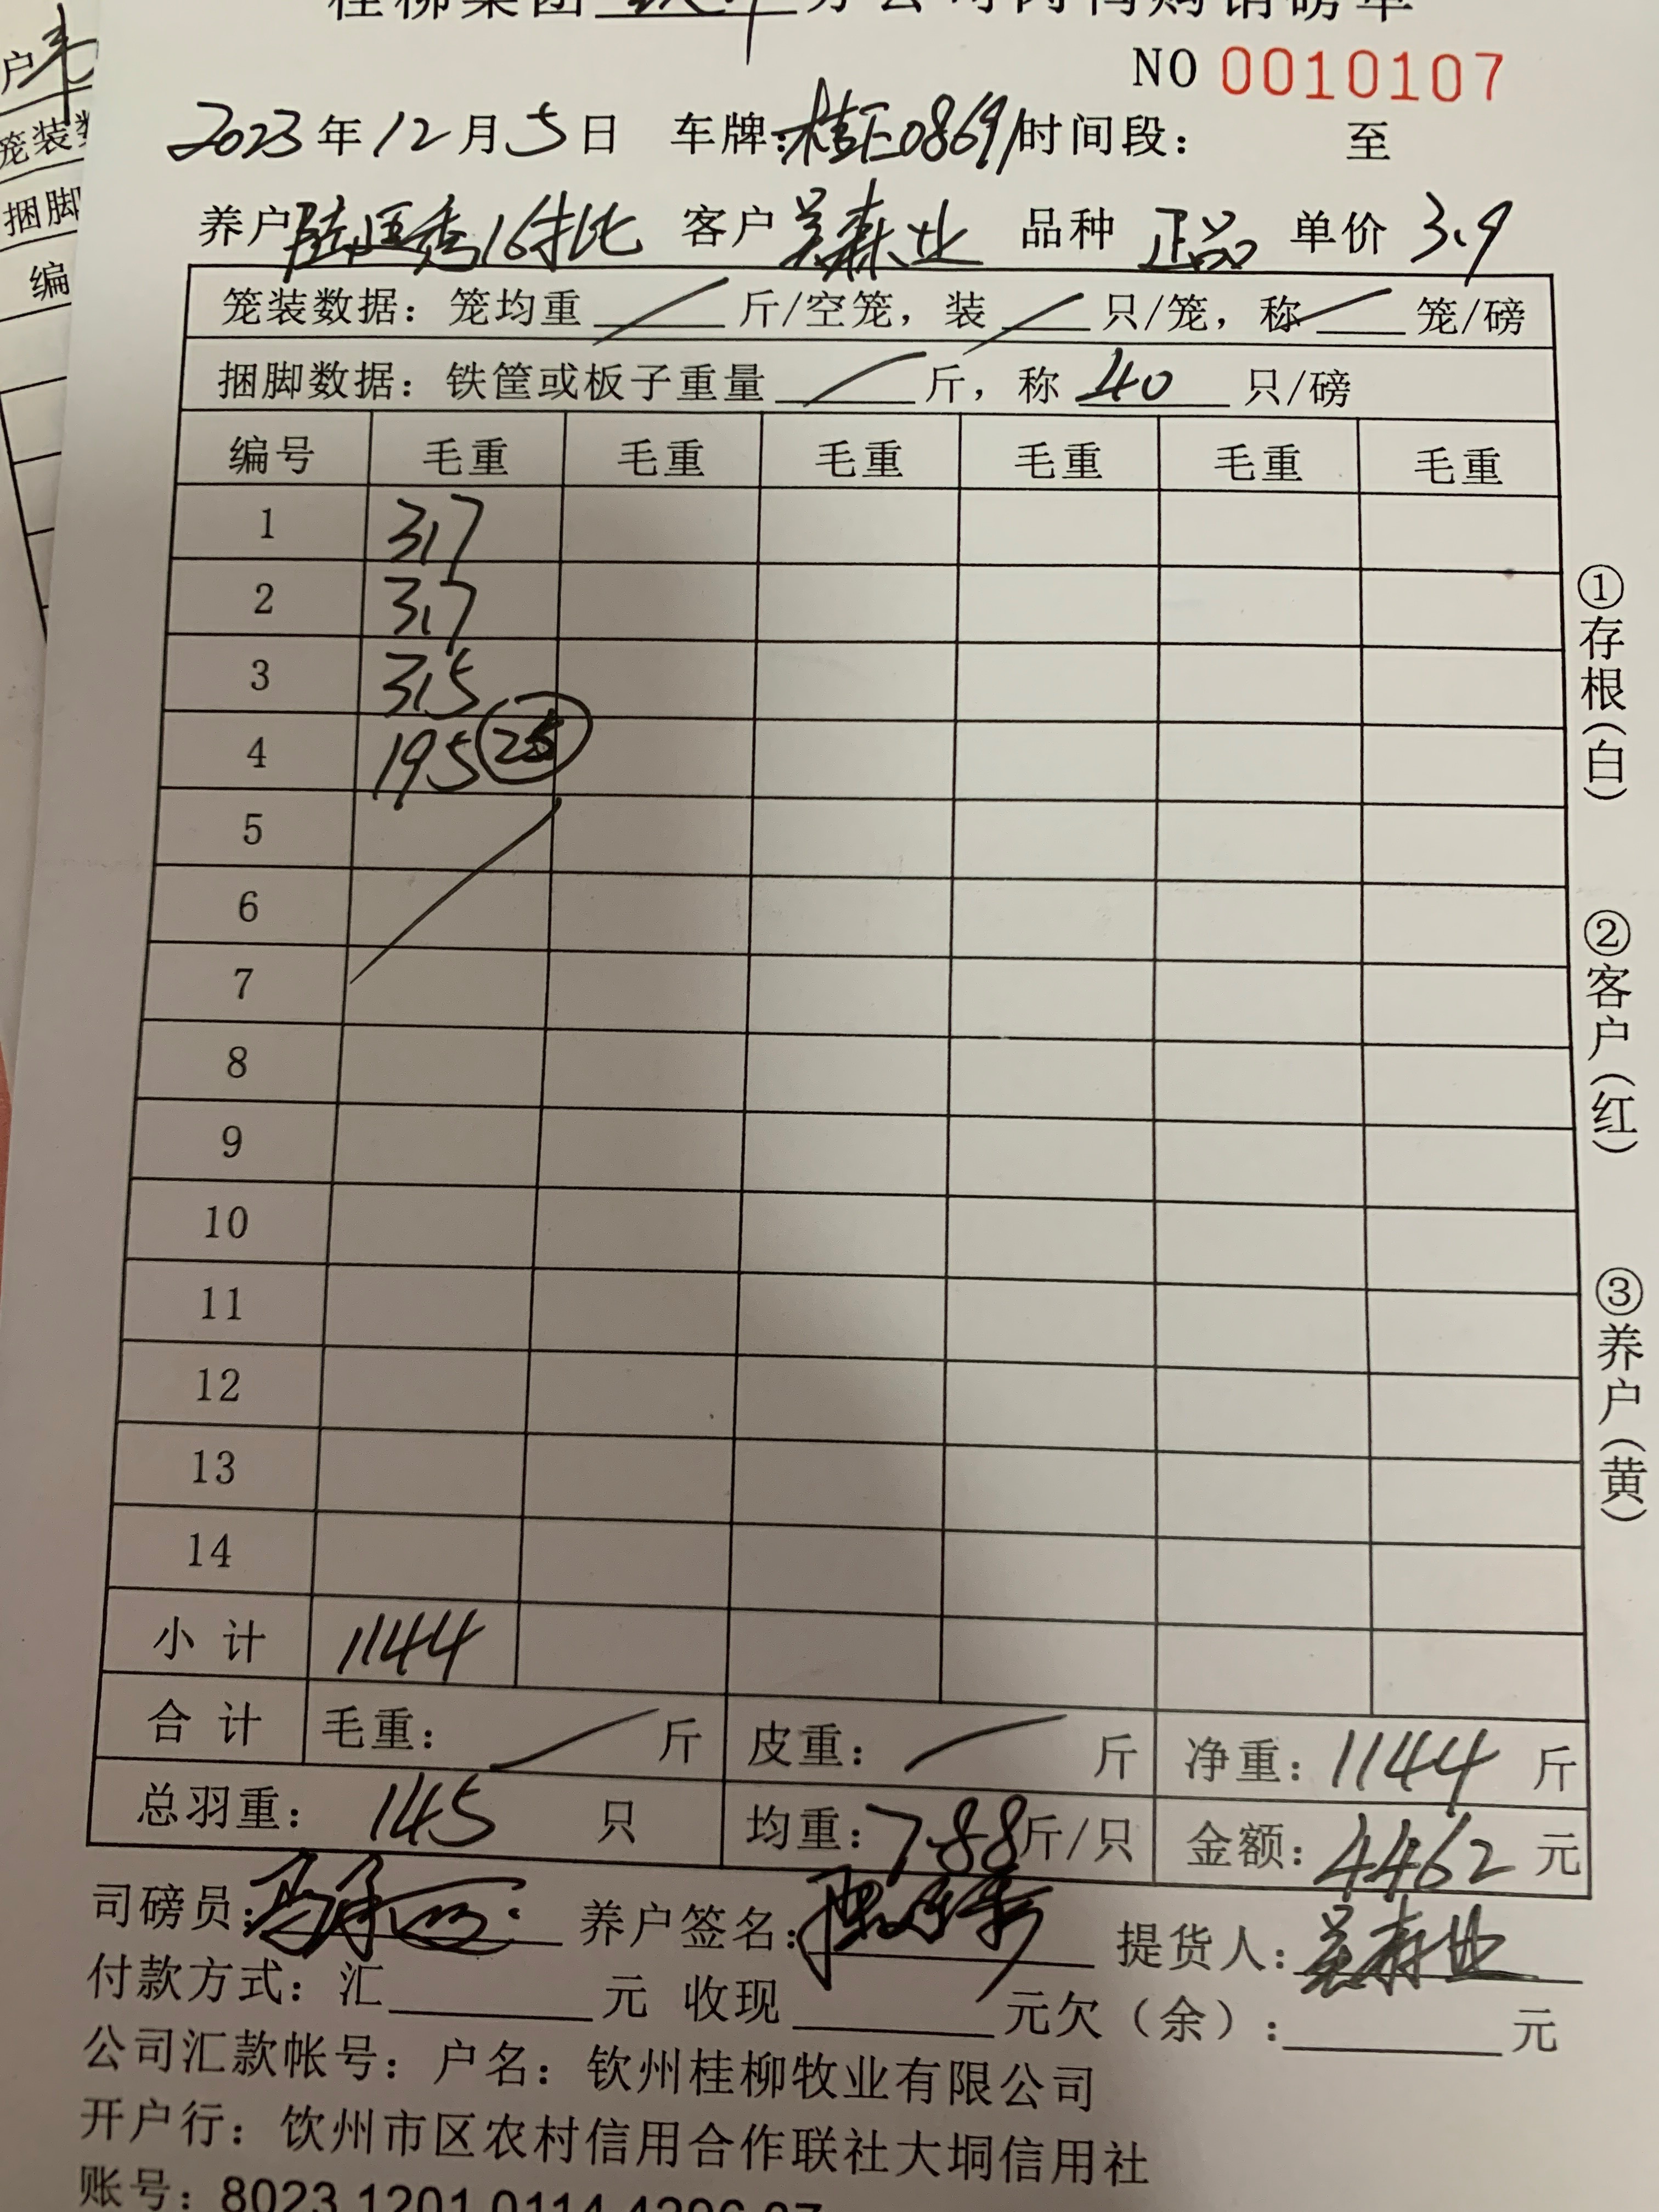 桂柳集团 钦州 分公司肉鸭购销磅单
NO 0010107
2023年12月5日 车牌: 桂E08691 时间段: 至
养户 16批 客户 吴森业 品种 正品 单价 3.9
笼装数据: 笼均重 / 斤/空笼, 装 / 只/笼, 称 / 笼/磅
捆脚数据: 铁筐或板子重量 / 斤, 称 40 只/磅
编号 毛重 毛重 毛重 毛重 毛重 毛重
1 317
2 317
3 315
4 195 25
5
6
7
8
9
10
11
12
13
14
小计 1144
合计 毛重: / 斤 皮重: / 斤 净重: 1144 斤
总羽重: 145 只 均重: 7.88 斤/只 金额: 4462 元
司磅员: 养户签名: 提货人: 吴森业
付款方式: 汇 元 收现 元 欠(余): 元
公司汇款帐号: 户名: 钦州桂柳牧业有限公司
开户行: 钦州市区农村信用合作联社大垌信用社
账号: 8023 1201 0114
①存根(白)
②客户(红)
③养户(黄)
户
笼装数
捆脚
编